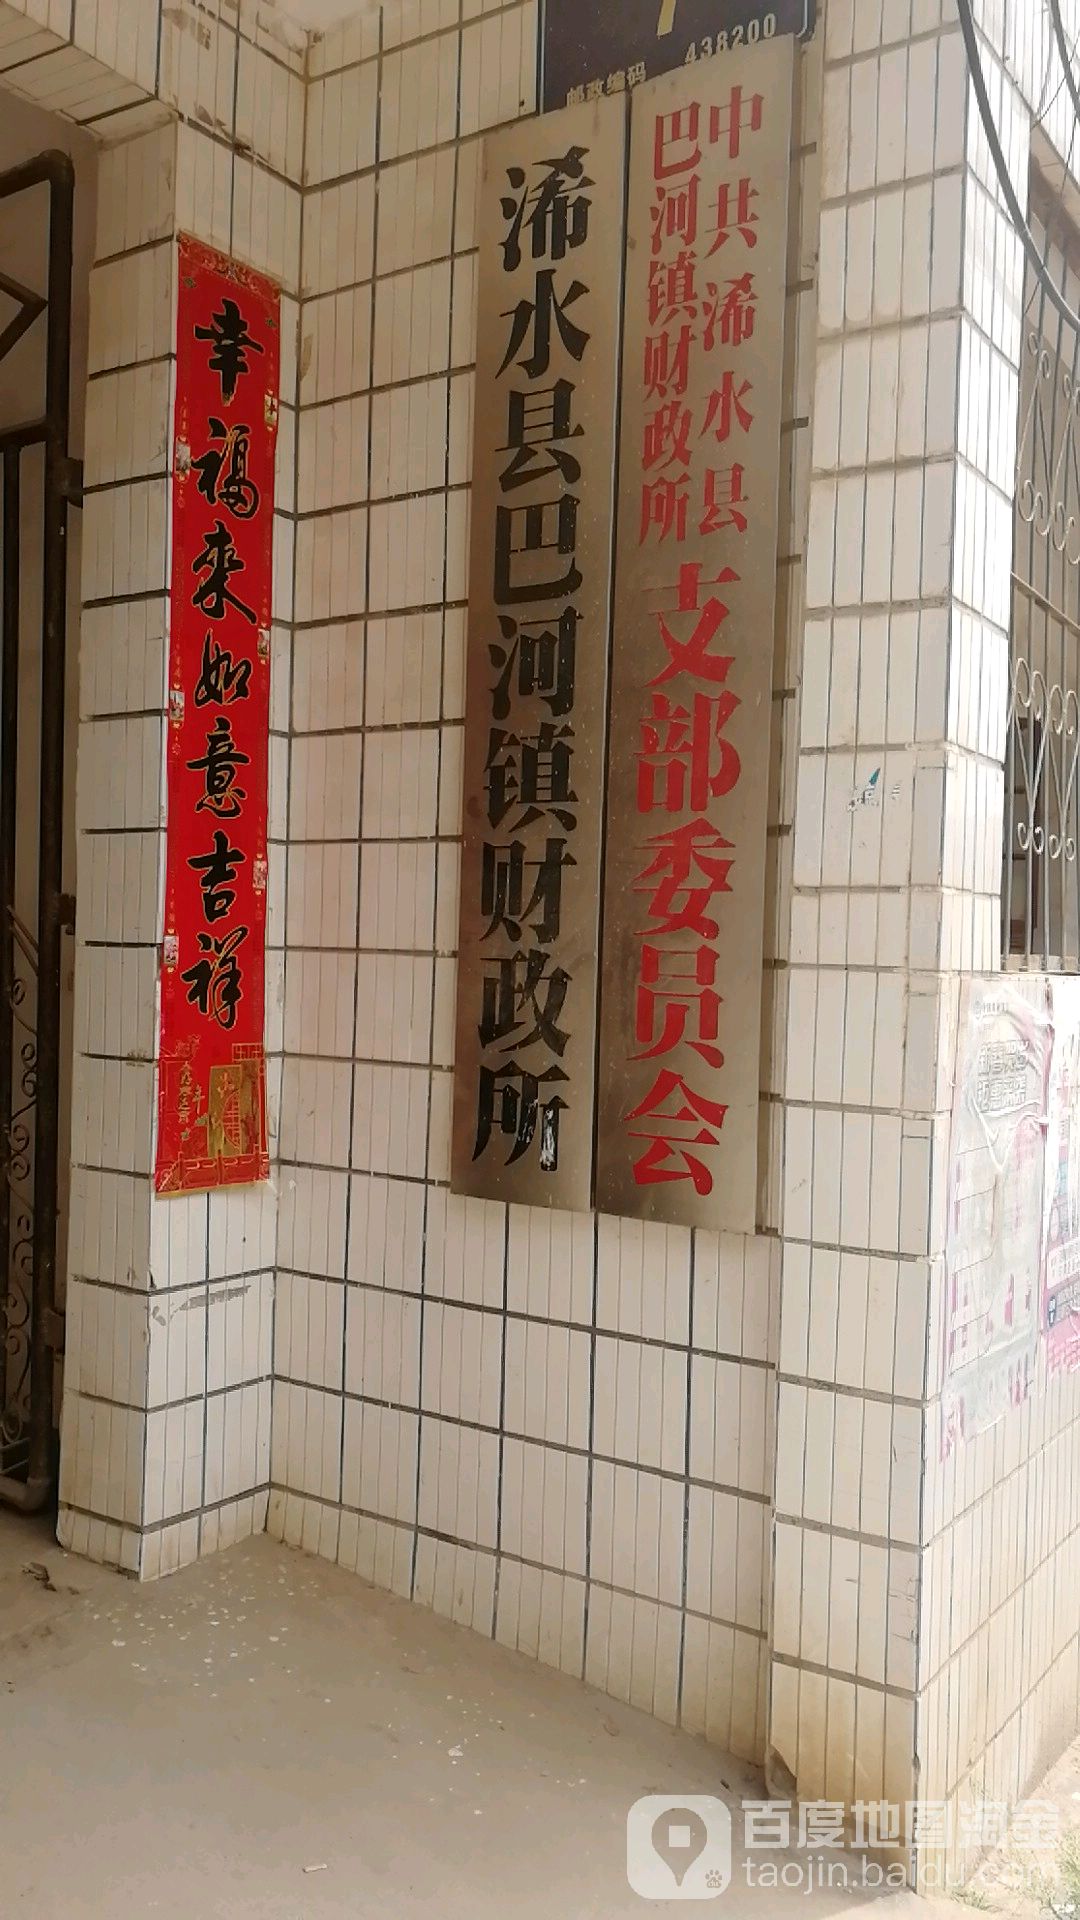 邮政编码 438200
中共浠水县
巴河镇财政所
支部委员会
浠水县巴河镇财政所
幸福来如意吉祥
百度地图淘金
taojin.baidu.com